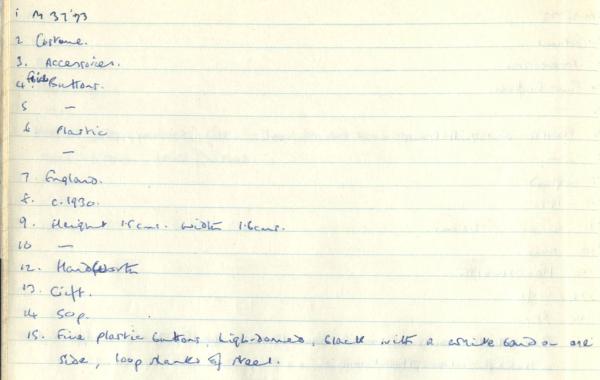 1 M 37'93
2 Costume.
3. Accessories.
4. Five Buttons.
5 —
6 Plastic
—
7 England.
8. c.1930.
9. Height 1.5cms. width 1.6cms.
10 —
12. Handsworth
13. Gift.
14 50p.
15. Five plastic buttons, high-domed, black with a white band on one
side, loop shanks of steel.